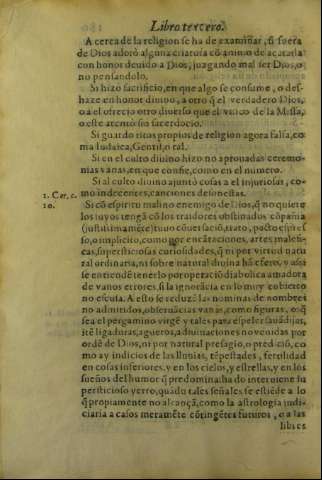 Libro tercero.
A cerca de la religion se ha de examinar, si fuera
de Dios adorò alguna criatura cō animo de acatarla
con honor deuido a Dios, juzgando mal ser Dios, o
no pensandolo.
Si hizo sacrificio, en que algo se consume, o des-
haze en honor diuino, a otro q̄ el verdadero Dios,
o a el ofrecio otro diuerso que el vnico de la Missa,
o este atentò sin sacerdocio.
Si guardo ritos propios de religion agora falsa, co
mo Iudaica, Gentil, o tal.
Si en el culto diuino hizo no aprouadas ceremo-
nias vanas, en que confie, como en el numero.
Si al culto diuino ajuntò cosas a el injuriosas, co-
mo indecentes, canciones desonestas.
1. Cor, c.
10.
Si cō espiritu malino enemigo de Dios, q̄ no quiere
los suyos tengā cō los traidores obstinados cōpañia
(justissimamēte) tuuo cōuersaciō, trato, pacto espres
so, o implicito, como por encātaciones, artes malefi-
cas, supersticiosas curiosidades, q̄ ni por virtud natu
ral ordinaria, ni sobre natural diuina hā efetos, y assi
se entiendē tenerlo por operaciō diabolica amadora
de vanos errores, si la ignorācia en lo muy cubierto
no escusa. A esto se reduzē las nominas de nombres
no admitidos, obseruācias vanas, como figuras, o q̄
sea el pergamino virgē y tales para espeler sauādijas,
itē ligaduras, agueros, adiuinaciones no venidas por
ordē de Dios, ni por natural presagio, o prediciō, co
mo ay indicios de las lluuias, tēpestades, fertilidad
en cosas inferiores, y en los cielos, y estrellas, y en los
sueños del humor q̄ predomina: ha do interuiene su
persticioso yerro, quādo tales señales se estiēde a lo
q̄ propiamente no alcançā, como la astrologia indi-
ciaria a casos meramēte cōtingētes futuros, o a las
libres